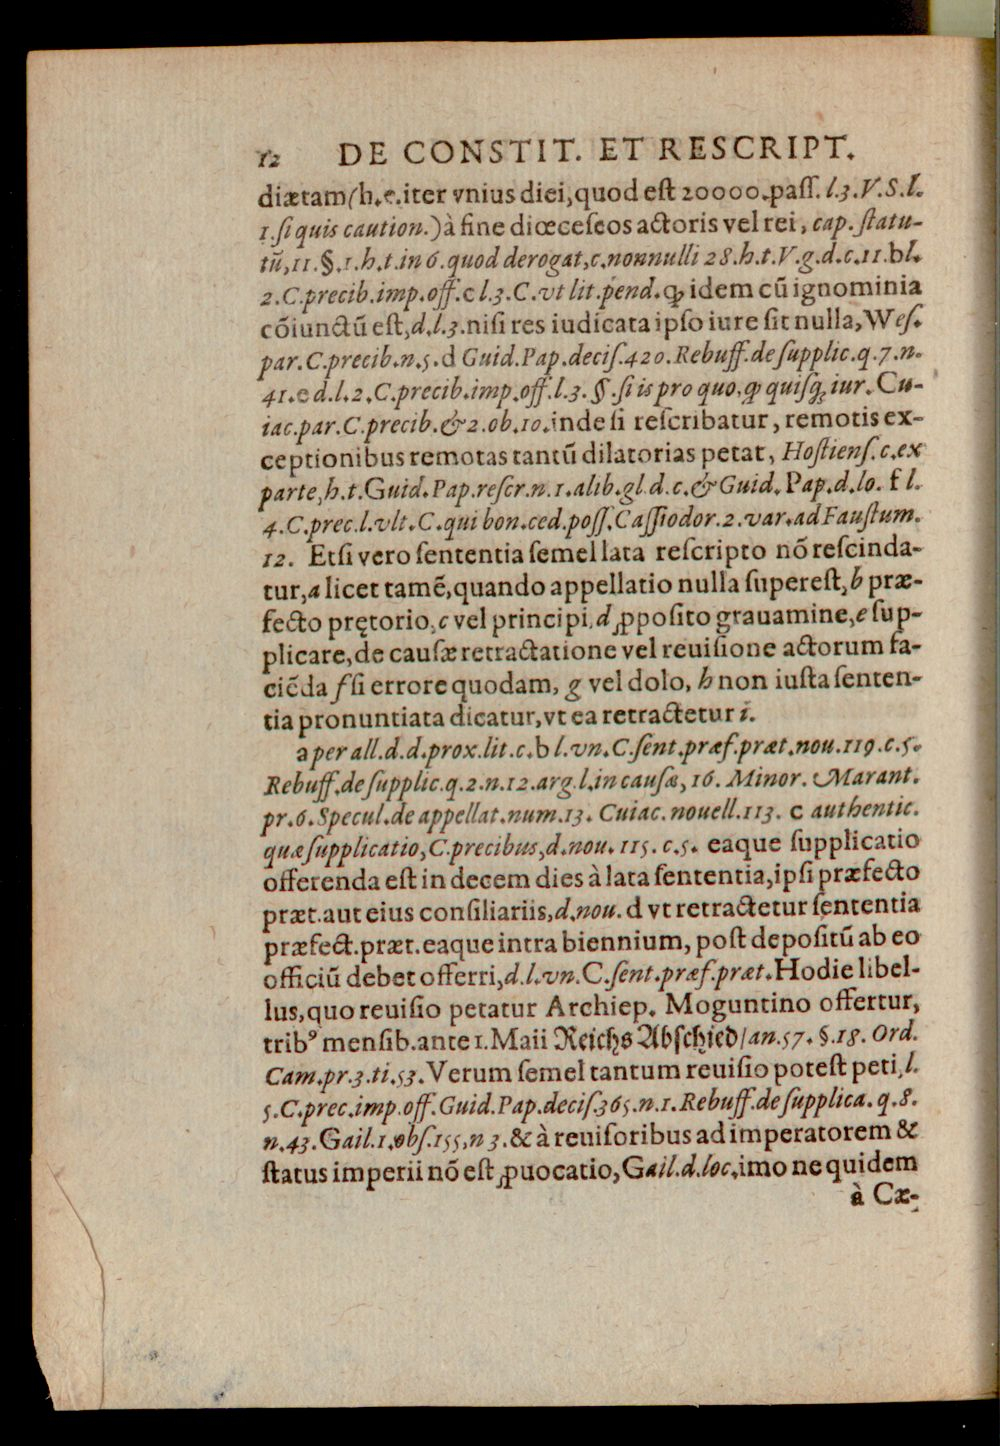 12 DE CONSTIT. ET RESCRIPT.
diætam (h.e. iter vnius diei, quod est 20000. pass. l.3.V.S.l.
1. si quis caution.) à fine diœceseos actoris vel rei, cap. statu-
tũ, 11. §.1.h.t. in 6. quod derogat, c. nonnulli 28.h.t.V.g.d.c.11. b l.
2.C. precib. imp. off. c l.3.C. vt lit. pend. ꝙ idem cũ ignominia
cõiunctũ est, d.l.3. nisi res iudicata ipso iure sit nulla, Wes.
par. C. precib. n.5. d Guid. Pap. decis. 420. Rebuff. de supplic. q.7. n.
41. e d.l.2. C. precib. imp. off. l.3. §. si is pro quo, ꝙ quisq; iur. Cu-
iac. par. C. precib. & 2. ob. 10. inde si rescribatur, remotis ex-
ceptionibus remotas tantũ dilatorias petat, Hostiens. c. ex
parte, h.t. Guid. Pap. rescr. n.1. alib. gl. d. c. & Guid. Pap. d. lo. f l.
4. C. prec. l. vlt. C. qui bon. ced. poss. Cassiodor. 2. var. ad Faustum.
12. Etsi vero sententia semel lata rescripto nõ rescinda-
tur, a licet tamẽ, quando appellatio nulla superest, b præ-
fecto prętorio, c vel principi, d ꝓposito grauamine, e sup-
plicare, de causæ retractatione vel reuisione actorum fa-
ciẽda f si errore quodam, g vel dolo, h non iusta senten-
tia pronuntiata dicatur, vt ea retractetur i.
a per all. d. d. prox. lit. c. b l. vn. C. sent. præf. præt. nou. 119. c. 5.
Rebuff. de supplic. q.2. n.12. arg. l. in causæ, 16. Minor. Marant.
pr. 6. Specul. de appellat. num. 13. Cuiac. nouell. 113. c authentic.
quæ supplicatio, C. precibus, d. nou. 115. c. 5. eaque supplicatio
offerenda est in decem dies à lata sententia, ipsi præfecto
præt. aut eius consiliariis, d. nou. d vt retractetur sententia
præfect. præt. eaque intra biennium, post depositũ ab eo
officiũ debet offerri, d. l. vn. C. sent. præf. præt. Hodie libel-
lus, quo reuisio petatur Archiep. Moguntino offertur,
tribꝰ mensib. ante 1. Maii Reichs Abschied/ an. 57. §. 18. Ord.
Cam. pr. 3. ti. 53. Verum semel tantum reuisio potest peti, l.
5. C. prec. imp. off. Guid. Pap. decis. 365. n. 1. Rebuff. de supplica. q. 8.
n. 43. Gail. 1. obs. 155, n 3. & à reuisoribus ad imperatorem &
status imperii nõ est ꝓuocatio, Gail. d. loc. imo ne quidem
à Cæ-